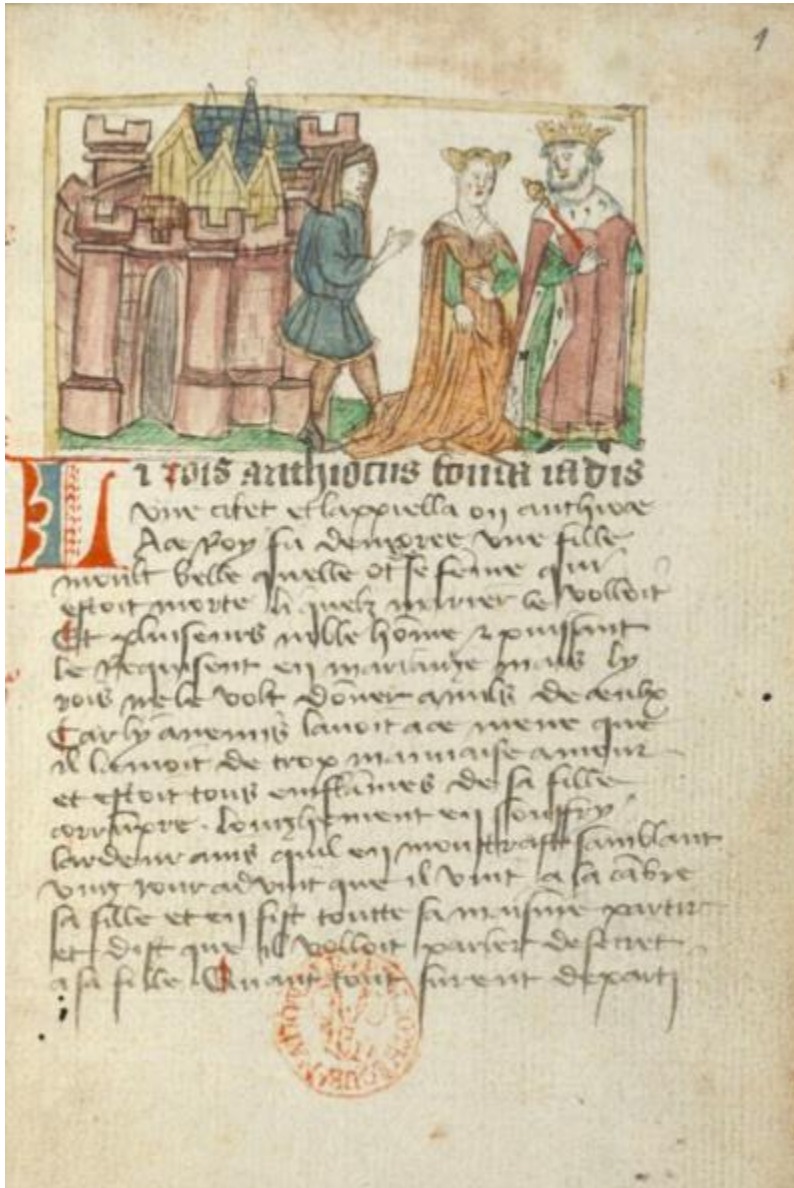 1
Li rois anthiocus fonda iadis
vne citet et lappiella on anthioce
A ce Roy fu demoree vne fille
moult belle quelle ot se feme qui
estoit morte li quelz marier le volloit
Et pluiseurs nille home 2 puissant
le Requisent en mariauge mais ly
rois ne le volt doner a nulz de ceulx
Car ly anemis lauoit a ce mene que
il lamoit de trop mauuaise amour
et estoit tous enflames de sa fille
corrumpre . longhement en souffry
lardeur ains quil en moustrast samblant
vng iour aduint que il vint a la cabre
sa fille et en fist toutte sa maisnie partir
et dist que il volloit parler de secret
a sa fille Quant tout furent departi